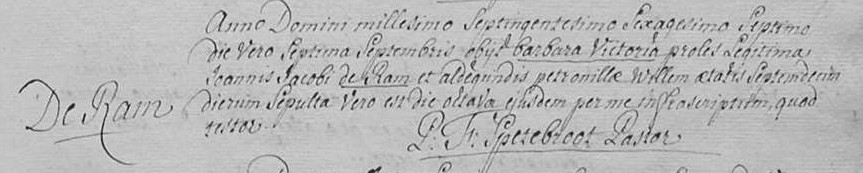 Anno Domini millesimo Septingentesimo Sexagesimo Septimo
die Vero Septima Septembris obijt barbara Victoria proles Legitima
Joannis Jacobi de Ram et aldegundis petronillæ Wellem ætatis Septemdecim
De Ram
dierum Sepulta Vero est die octava ejusdem per me infrascriptum, quod
testor
P: Fr: Spetebroot Pastor